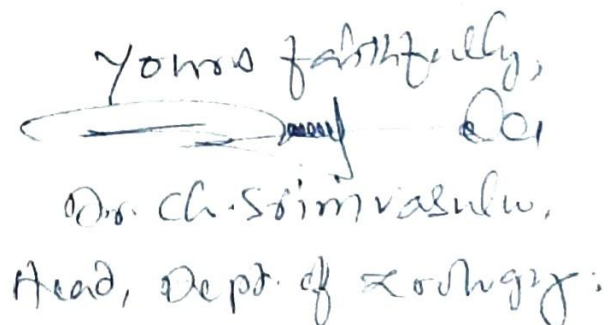 Yours faithfully,
Dr. Ch. Srinivasulu.
Head, Dept. of Zoology.